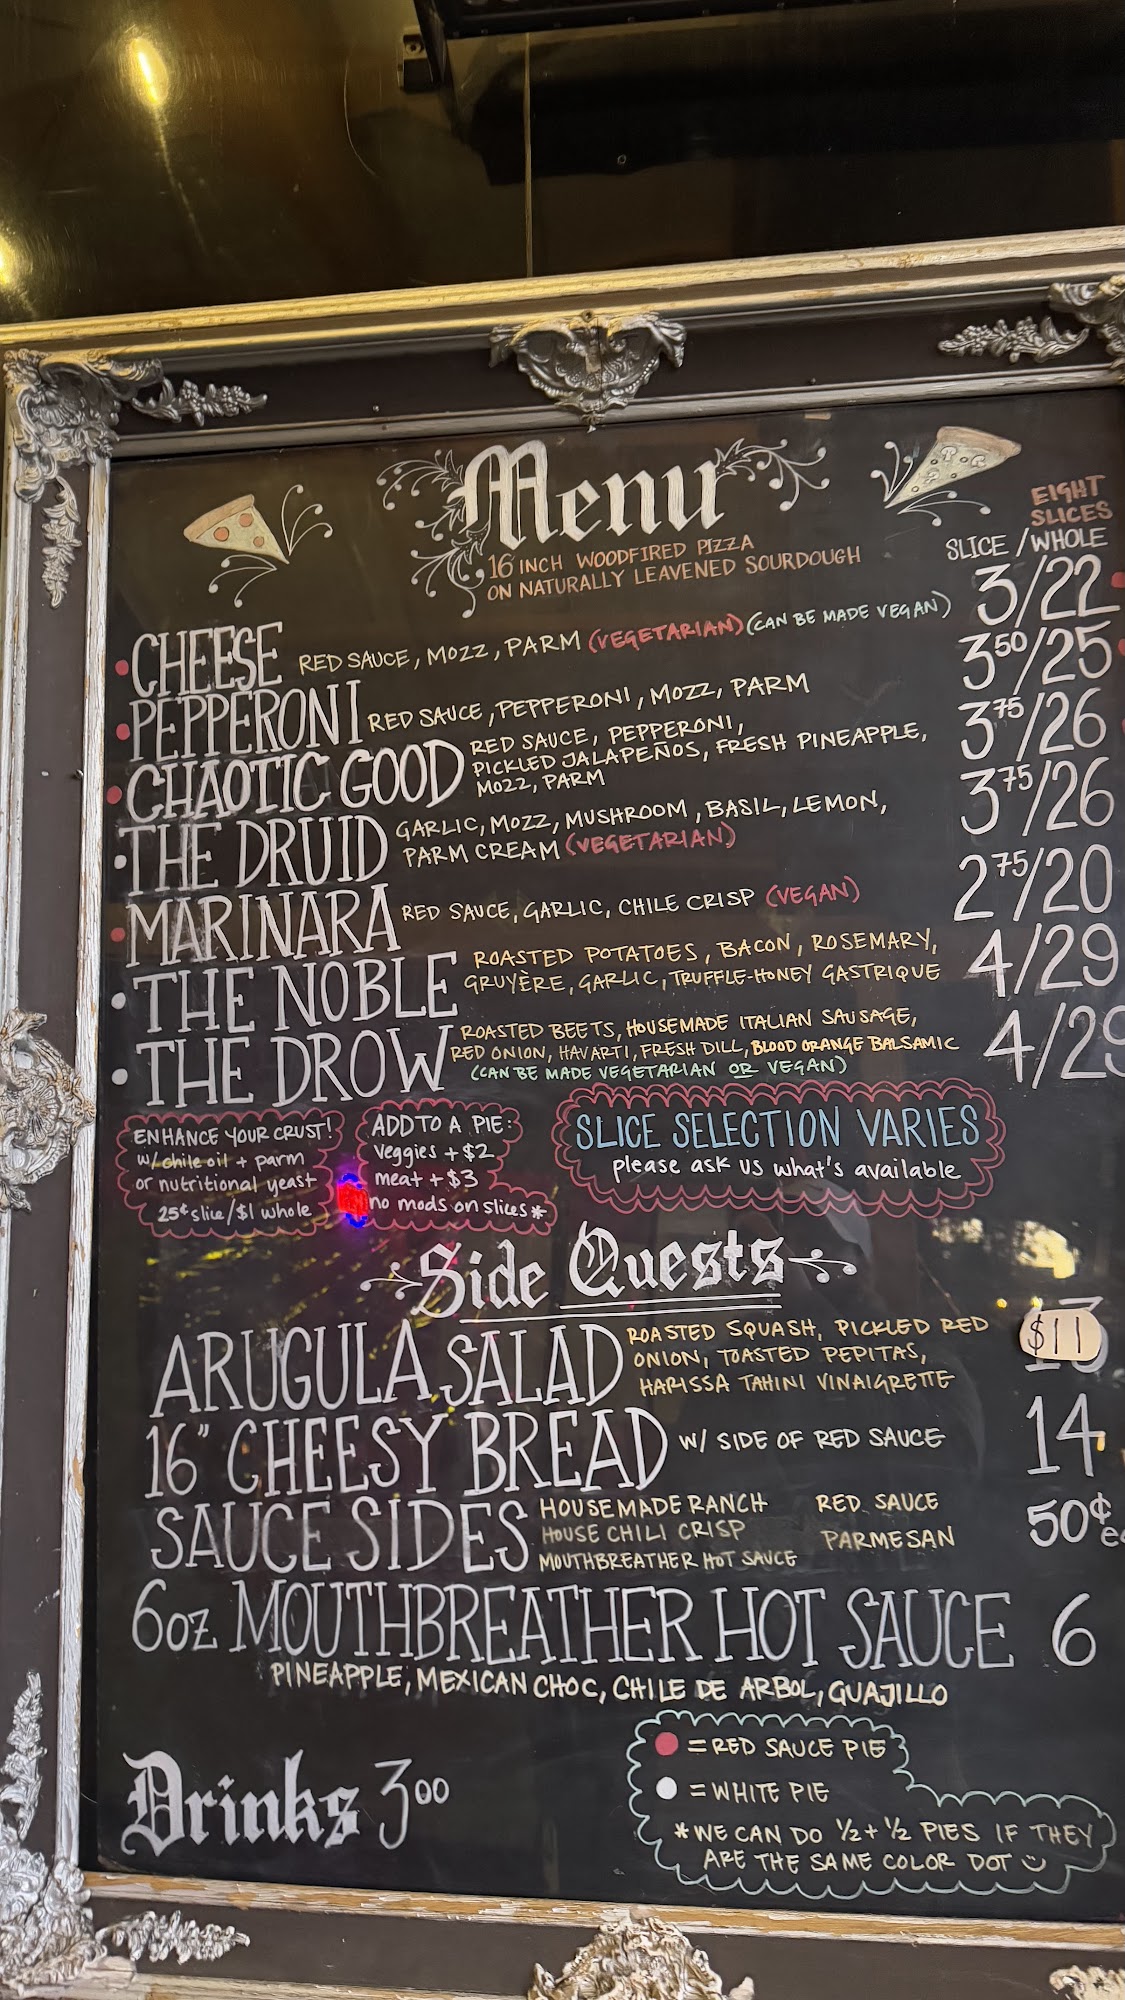 Menu
16 INCH WOODFIRED PIZZA
ON NATURALLY LEAVENED SOURDOUGH
EIGHT
SLICES
SLICE / WHOLE
CHEESE RED SAUCE, MOZZ, PARM (VEGETARIAN) (CAN BE MADE VEGAN) 3/22
PEPPERONI RED SAUCE, PEPPERONI, MOZZ, PARM 3.50/25
CHAOTIC GOOD RED SAUCE, PEPPERONI,
PICKLED JALAPEÑOS, FRESH PINEAPPLE,
MOZZ, PARM 3.75/26
THE DRUID GARLIC, MOZZ, MUSHROOM, BASIL, LEMON,
PARM CREAM (VEGETARIAN) 3.75/26
MARINARA RED SAUCE, GARLIC, CHILE CRISP (VEGAN) 2.75/20
THE NOBLE ROASTED POTATOES, BACON, ROSEMARY,
GRUYÈRE, GARLIC, TRUFFLE-HONEY GASTRIQUE 4/29
THE DROW ROASTED BEETS, HOUSEMADE ITALIAN SAUSAGE,
RED ONION, HAVARTI, FRESH DILL, BLOOD ORANGE BALSAMIC
(CAN BE MADE VEGETARIAN OR VEGAN) 4/29
ENHANCE YOUR CRUST!
w/ chile oil + parm
or nutritional yeast
25¢ slice/$1 whole
ADD TO A PIE:
Veggies + $2
meat + $3
no mods on slices*
SLICE SELECTION VARIES
please ask us what's available
Side Quests
ARUGULA SALAD ROASTED SQUASH, PICKLED RED
ONION, TOASTED PEPITAS,
HARISSA TAHINI VINAIGRETTE $11
16" CHEESY BREAD W/ SIDE OF RED SAUCE 14
SAUCE SIDES HOUSEMADE RANCH RED SAUCE
HOUSE CHILI CRISP PARMESAN
MOUTHBREATHER HOT SAUCE 50¢
6oz MOUTHBREATHER HOT SAUCE 6
PINEAPPLE, MEXICAN CHOC, CHILE DE ARBOL, GUAJILLO
Drinks 3.00
= RED SAUCE PIE
= WHITE PIE
*WE CAN DO ½ + ½ PIES IF THEY
ARE THE SAME COLOR DOT